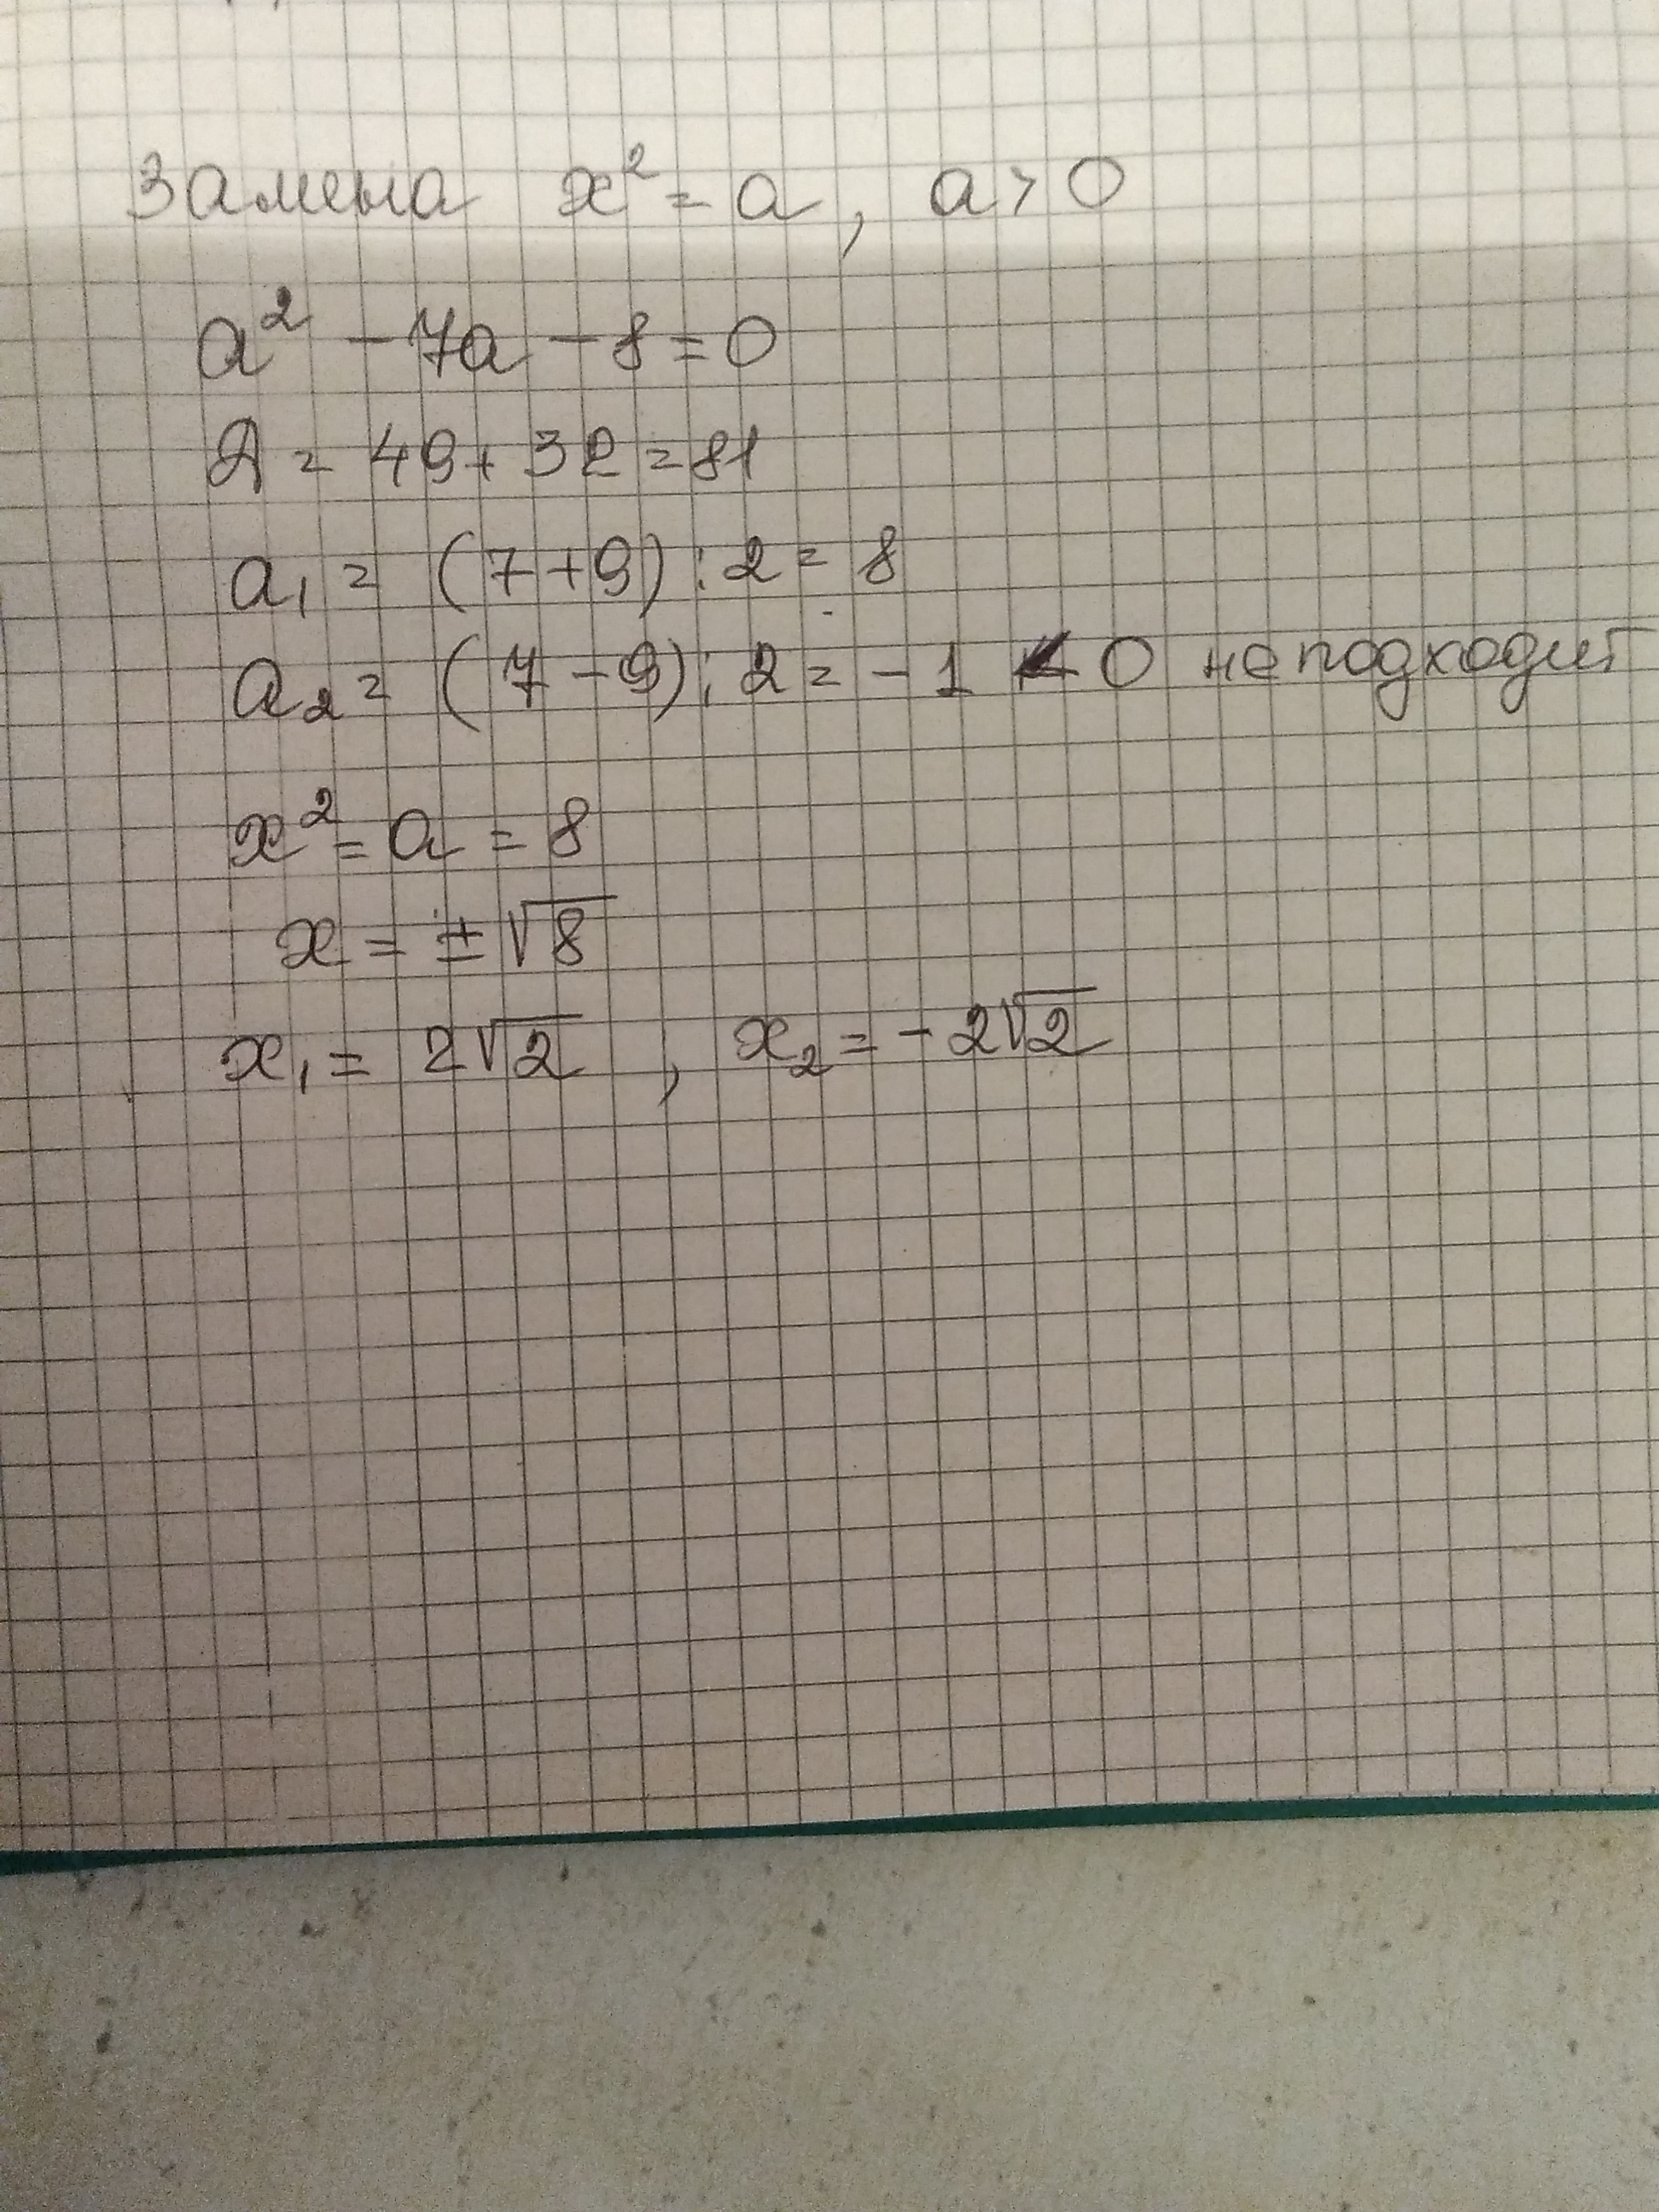 Замена x² = a, a > 0
a² - 7a - 8 = 0
D = 49 + 32 = 81
a₁ = (7 + 9) : 2 = 8
a₂ = (7 - 9) : 2 = -1 < 0 не подходит
x² = a = 8
x = ±√8
x₁ = 2√2 , x₂ = -2√2